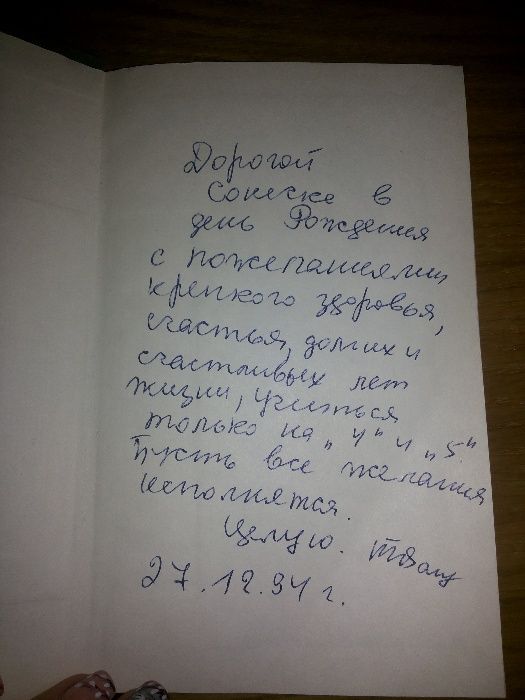 Дорогой
Сонечке в
день Рождения
с пожеланиями
крепкого здоровья,
счастья, долгих и
счастливых лет
жизни, учиться
только на „4“ и „5“
Пусть все желания
исполнятся.
Целую.
27.12.94 г.